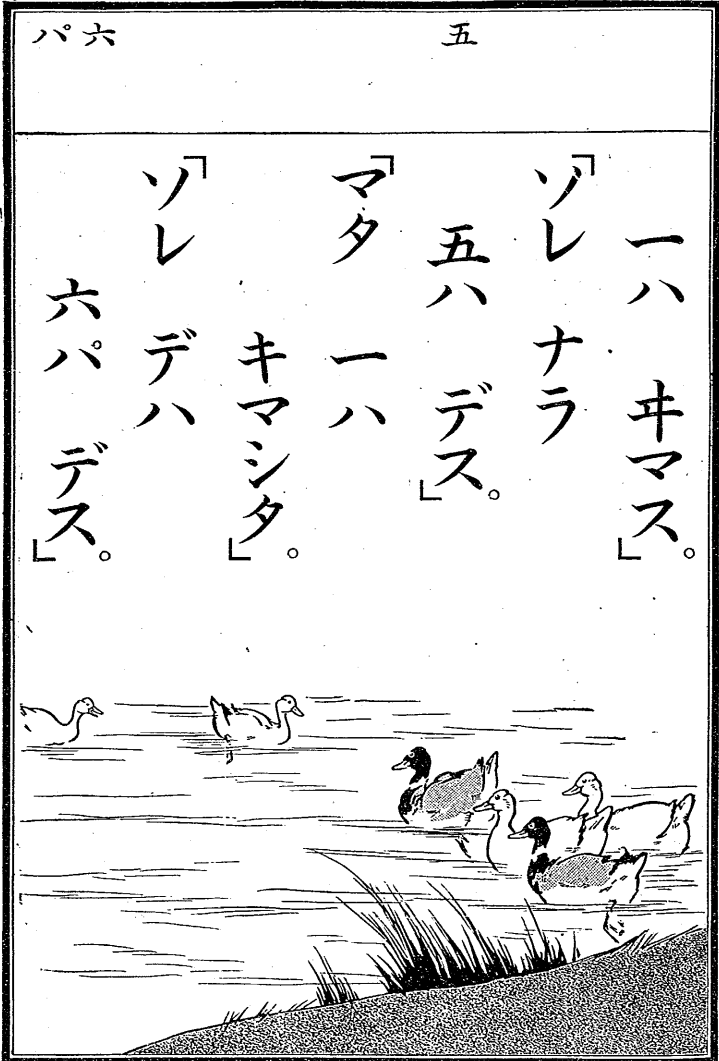 五
六パ
一ハ ヰマス。」
「ゾレ ナラ
五ハ デス。」
「マタ 一ハ
キマシタ。」
「ソレ デハ
六パ デス。」